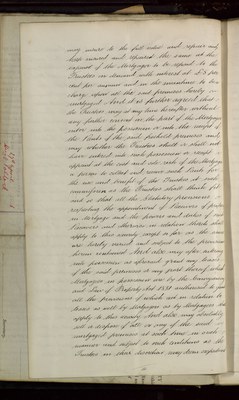 may insure to the full extent and repair and
keep insured and repaired the same at the
expense of the Mortgagor to be repaid to the
Trustees on demand with interest at £5 per
cent per annum and in the meantime to be a
charge upon all the said premises hereby
mortgaged And it is further agreed that
the Trustees may at any time hereafter without
any further consent on the part of the Mortgagor
enter into the possession or into the receipt of
the Rents of the said premises and
may whether the Trustees shall or shall not
have entered into such possession or receipt
appoint at the cost and sole risk of the Mortgagor
a person to collect and receive such Rents for
the use and benefit of the Trustees at such
commission as the Trustees shall think fit
and so that all the Statutory provisions
respecting the appointment of Receivers of property
in Mortgage and the powers and duties of such
Receivers and otherwise in relation thereto shall
apply to this security except so far as the same
are hereby varied and subject to the provisions
herein contained And also may after entering
into possession as aforesaid grant any leases
of the said premises or any part thereof which
Mortgagees in possession are by the Conveyancing
and Law of Property Act 1881 authorized to grant
all the provisions of which act in relation to
leases as well by Mortgagors as by Mortgagees shall
apply to this security And also may absolutely
sell or dispose of all or any of the said
mortgaged premises at such time in such
manner and subject to such conditions as the
Trustees in their discretion may deem expedient